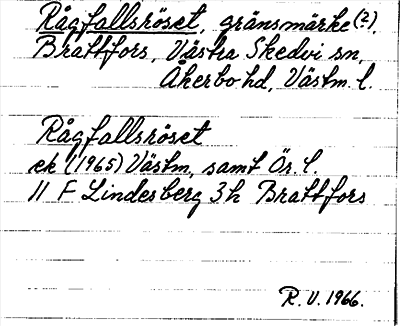 Rågfallsröset, gränsmärke(?),
Brattfors, Västra Skedvi sn,
Åkerbo hd, Västm. l.
Rågfallsröset
ek (1965) Västm, samt Ör. l.
11 F Lindesberg 3h Brattfors
R. V. 1966.